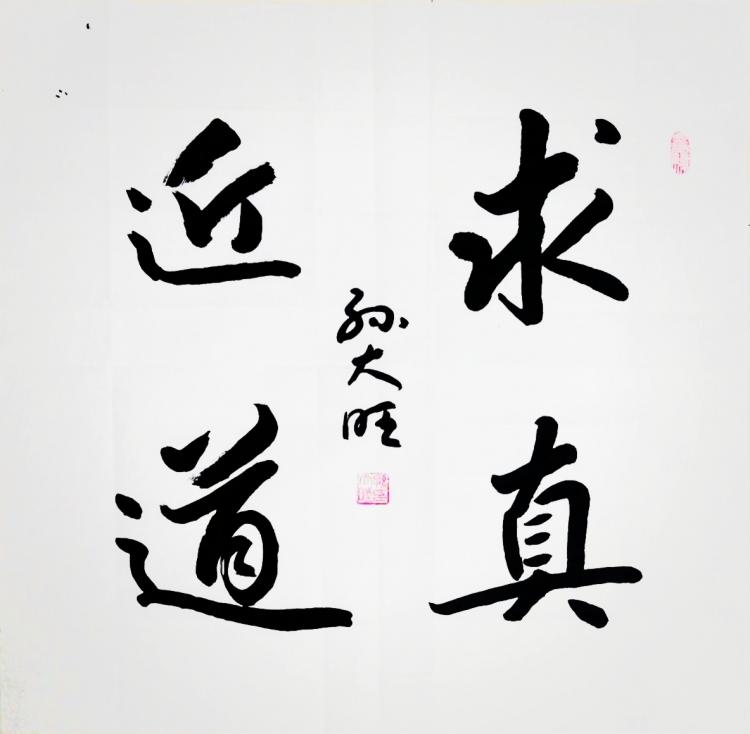 求真
近道
孙大旺